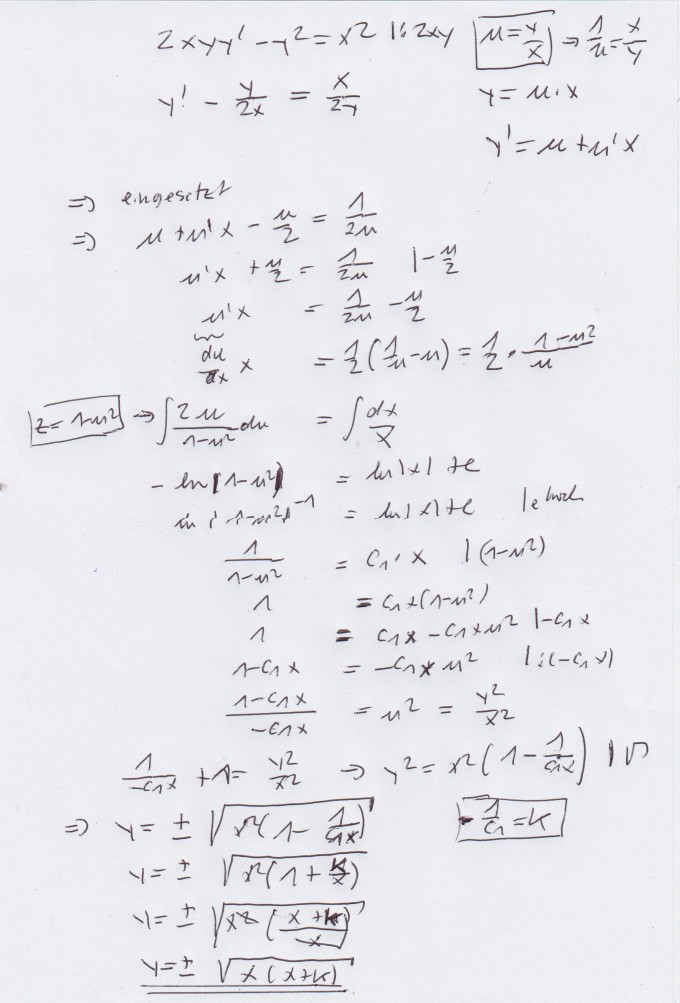 2xyy' - y² = x² |: 2xy
u = y/x → 1/u = x/y
y' - y/2x = x/2y
y = u · x
y' = u + u'x
⇒ eingesetzt
⇒ u + u'x - u/2 = 1/2u
u'x + u/2 = 1/2u | - u/2
u'x = 1/2u - u/2
du/dx x = 1/2 (1/u - u) = 1/2 · 1-u²/u
z = 1-u² → ∫ 2u/1-u² du = ∫ dx/x
- ln|1-u²| = ln|x| + c
= ln|x| + c | e hoch
1/1-u² = C₁ · x | (1-u²)
1 = C₁x(1-u²)
1 = C₁x - C₁xu² | -C₁x
1-C₁x = -C₁xu² | :(-C₁x)
1-C₁x/-C₁x = u² = y²/x²
1/-C₁x + 1 = y²/x² → y² = x²(1 - 1/C₁x) | √
⇒ y = ± √x²(1 - 1/C₁x)
- 1/C₁ = k
y = ± √x²(1 + k/x)
y = ± √x²(x+k/x)
y = ± √x(x+k)